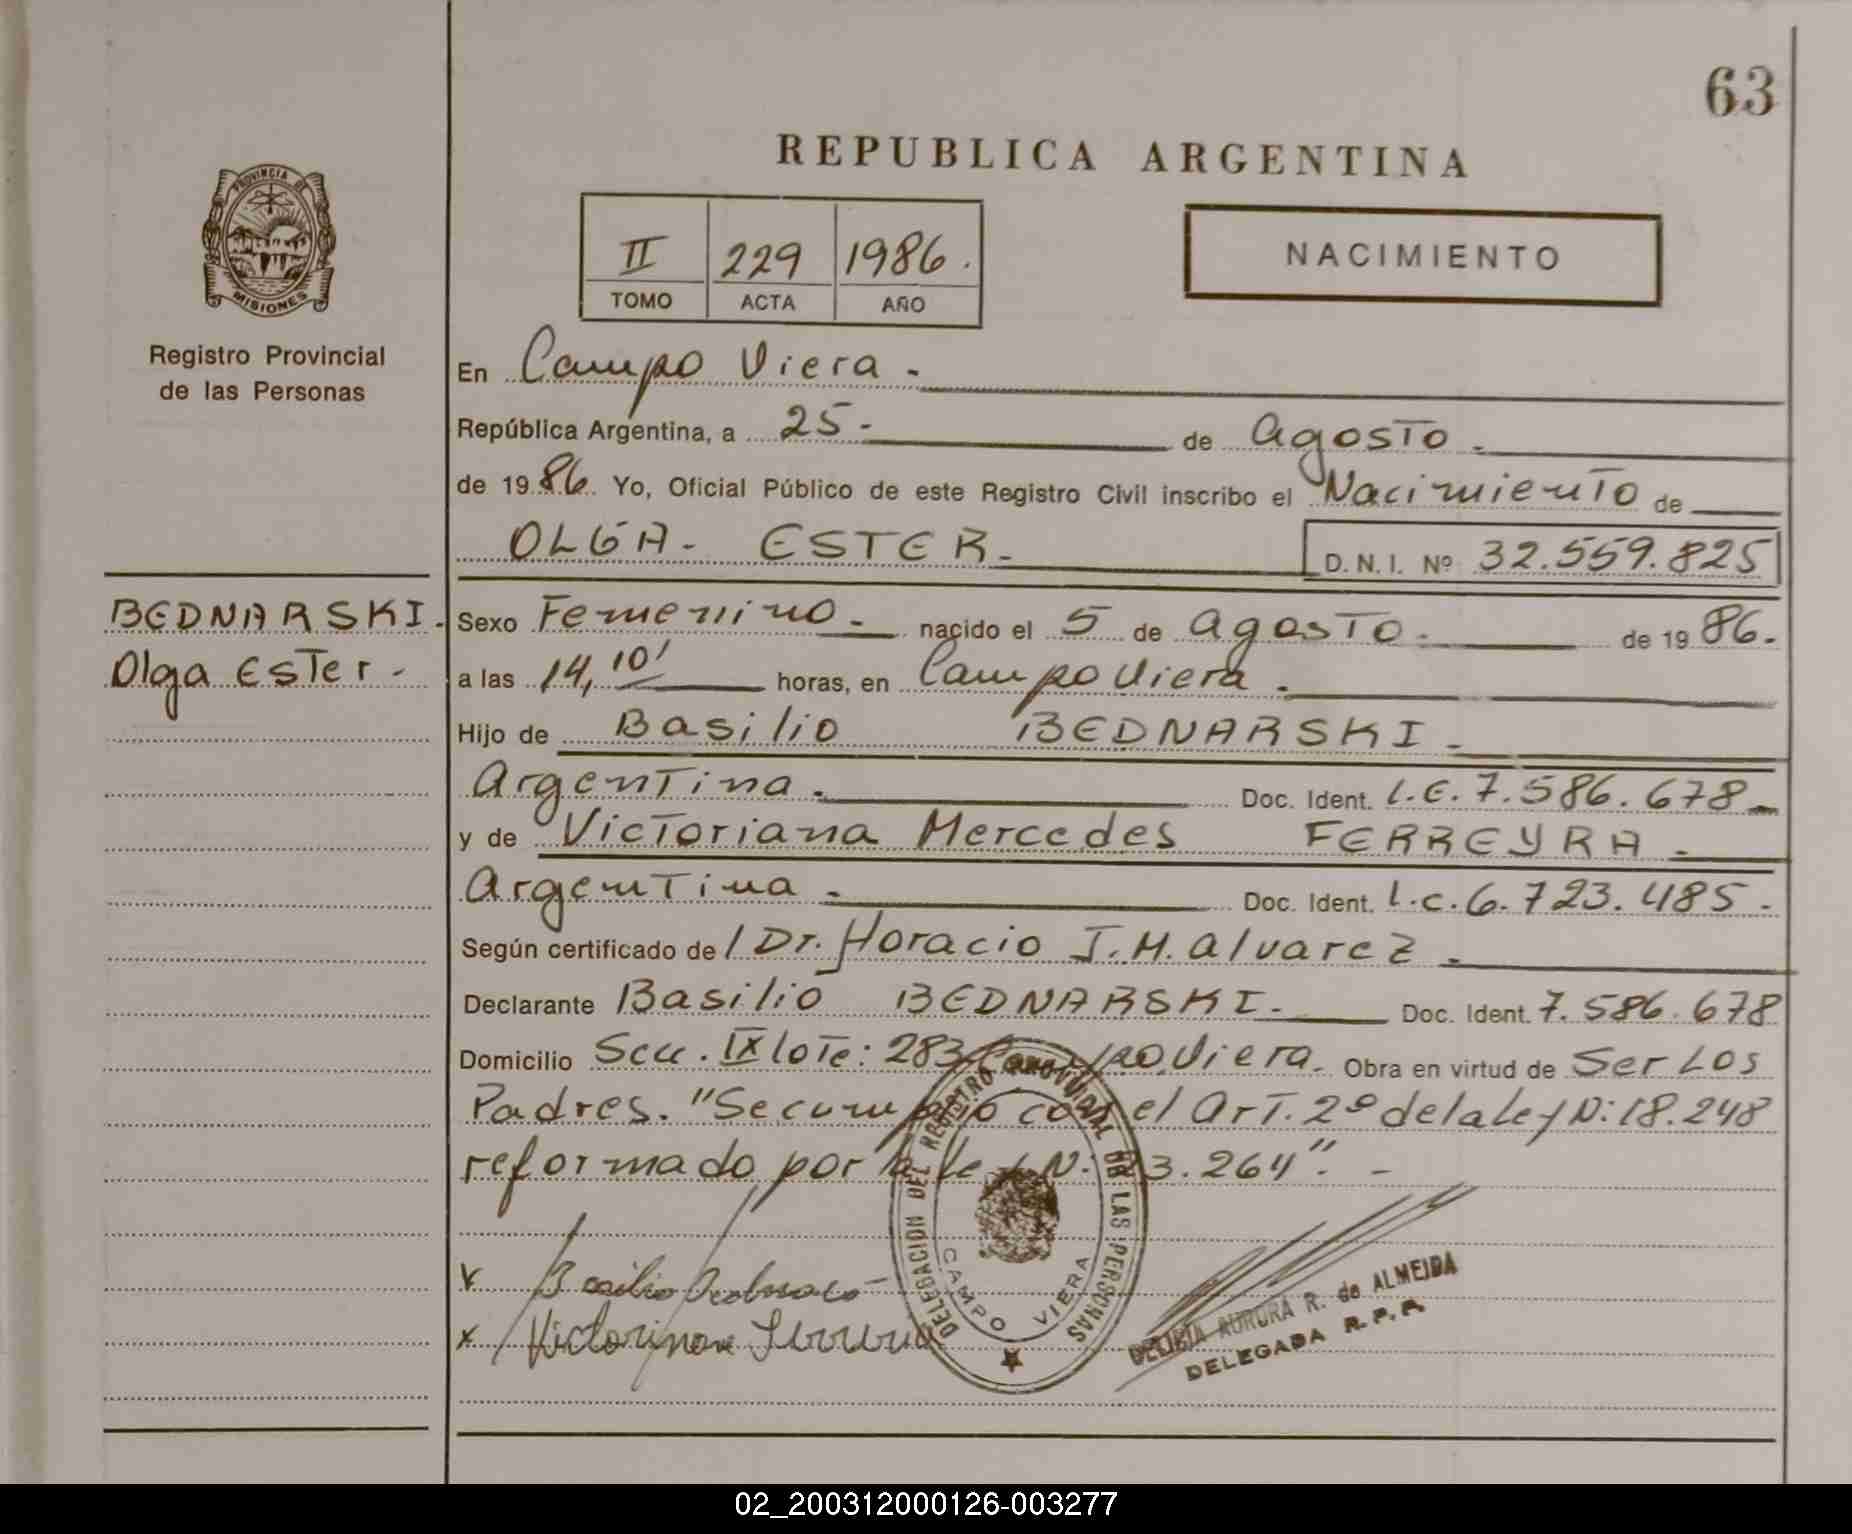 63
REPUBLICA ARGENTINA
PROVINCIA DE
MISIONES
Registro Provincial
de las Personas
II 229 1986.
TOMO ACTA AÑO
NACIMIENTO
En Campo Viera.
República Argentina, a 25- de Agosto.
de 1986 Yo, Oficial Público de este Registro Civil inscribo el Nacimiento de
OLGA- ESTER- D. N. I. Nº 32.559.825
BEDNARSKI.
Olga Ester-
Sexo Femenino. nacido el 5 de Agosto. de 1986.
a las 14,10' horas, en Campo Viera.
Hijo de Basilio BEDNARSKI.
Argentina. Doc. Ident. L.E.7.586.678
y de Victoriana Mercedes FERREYRA.
Argentina. Doc. Ident. L.C.6.723.485.
Según certificado de / Dr. Horacio J.H. Alvarez.
Declarante Basilio BEDNARSKI. Doc. Ident. 7.586.678
Domicilio Secc. IX lote: 283 Campo Viera. Obra en virtud de Ser Los
Padres. "Se cumplio con el Art. 2º de la Ley N: 18.248
reformado por la ley N: 23.264". -
DELEGACION DEL REGISTRO PROVINCIAL DE LAS PERSONAS
CAMPO VIERA
Basilio
DELIRIA AURORA R. de ALMEIDA
DELEGADA R. P. P.
02_200312000126-003277